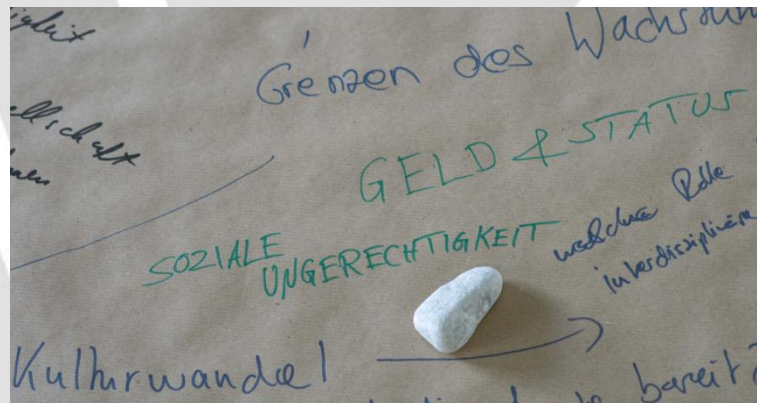 Grenzen des Wachstum
GELD & STATUS
ellschaft
SOZIALE
UNGERECHTIGKEIT
welche Rolle
interdisziplinäre
Kulturwandel
bereit